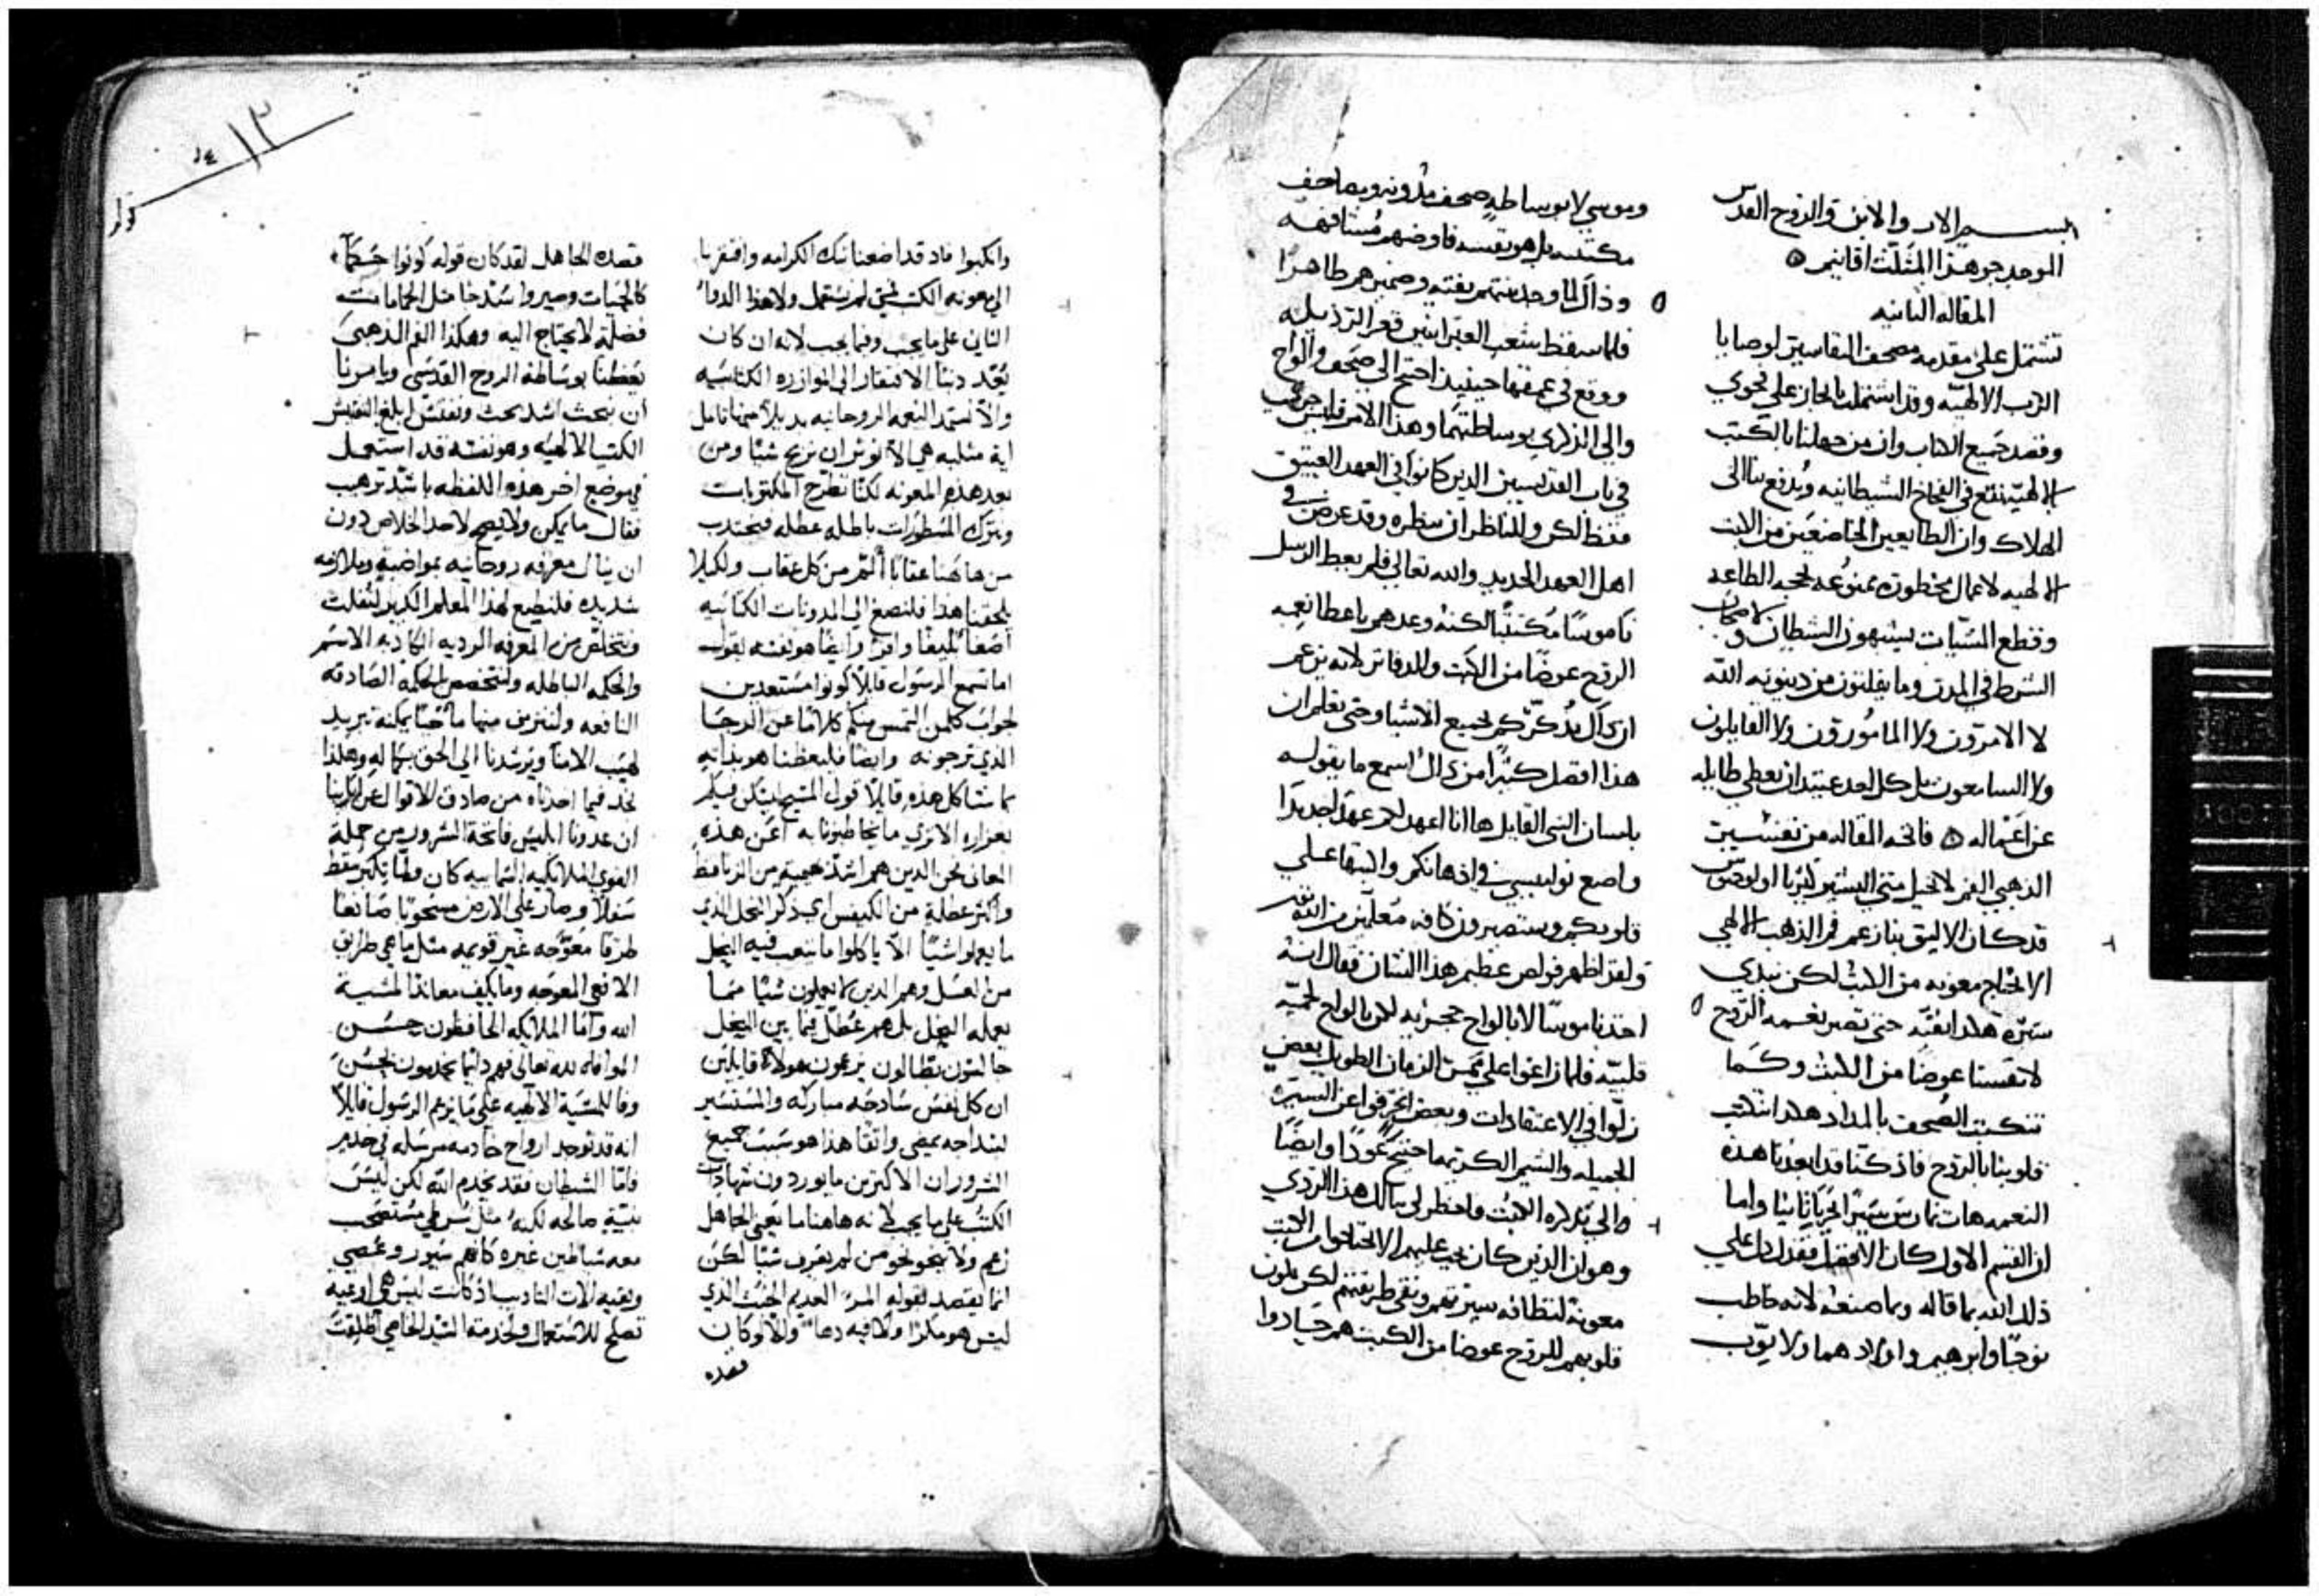 بسم الاب والابن والروح القدس
الموحد جوهرا المثلث اقانيم
المقاله الثانيه
تشتمل على مقدمه مصحف التفاسير لوصايا
الرب الالهيه وقد اشتملت بالجاز على فحوي
وقصد جميع الكتاب وان من جهلنا بالكتب
الالهيه نقع في الفخاخ الشيطانيه وندفع بنا الى
الهلاك وان الطايعين الخاضعين من الابت
الالهيه لاعمال محظوره ممنوعه لحجه الطاعه
وقطع السيات يشبهون الشيطان
الشرط في المدن وما يفلتون من دينونه الله
لا الامرون ولا المامورون ولا القايلون
ولا السامعون بل كل احد عتيد ان يعطي طايله
عن اعماله فاتحه المقاله من تفسير
الذهبي الفم لانجيل متي البشير
قد كان الاليق بنا زعم فم الذهب الالهي
الا نحتاج معونه من الكتب لكن نبدي
سيره هكذا نقيه حتى تصير نعمه الروح
لانفسنا عوضا من الكتب وكما
تكتب الصحف بالمداد هكذا تكتب
قلوبنا بالروح فاذ كنا قد ابعدنا هذه
النعمه هات نمارس سيرا اخريا ثانيا واما
ان القسم الاول كان الافضل فقد دل علي
ذلك الله بما قاله وبما صنعه لانه خاطب
نوحا وابرهيم واولادهما ولا يوب
وموسي لا بوساطه صحف مدونه ومصاحف
مكتتبه بل هو بنفسه فاوضهم مشافهه
وذاك لما وجد نيتهم نقيه وضميرهم طاهرا
فلما سقط شعب العبرانيين قعر الرذيله
ووقع في عمقها حينيذ احتيج الى صحف والواح
والي الذكري بوساطتهما وهذا الامر فليس
في باب القديسين الذين كانوا في العهد العتيق
فقط لكن وللناظر ان ينظره وقد عرض في
اهل العهد الجديد والله تعالي فلم يعط الرسل
ناموسا مكتتبا لكنه وعدهم باعطا نعمه
الروح عوضا من الكتب والدفاتر لانه يزعم
ان ذاك يذكركم لجميع الاشيا وحتى تعلم ان
هذا افضل كثيرا من ذاك اسمع ما يقوله
بلسان النبي القايل ها انا اعهد لكم عهدا جديدا
واضع نواميسي في اذهانكم واكتبها علي
قلوبكم وستصيرون كافه متعلمين من الله
ولقد اظهر فولص عظيم هذا الشان فقال انه
اخذ ناموسا لا بالواح حجريه لكن بالواح لحميه
قلبيه فلما زاغوا على ممر الزمان الطويل بعض
زلوا في الاعتقادات وبعض انحرفوا عن السيره
الجميله والشيم الكريمه احتيج عودا وايضا
والى تذكره الكتب فانظر الى تمالك هذا الردي
وهو ان الذين كان يجب عليهم الا يحتاجوا من الكتب
معونة لنظافه سيرتهم ونقى طريقتهم لكن يبذلون
قلوبهم للروح عوضا من الكتب هم حادوا
وانكبوا فاذ قد اضعنا تلك الكرامه وافتقرنا
الى معونه الكتب لم نستعمل ولا هذا الدوا
الثاني على ما يجب وفيما يجب لانه ان كان
يعد ذنبا الافتقار الى الموازره الكتابيه
والا نستمد النعمه الروحانيه بديلا منها تامل
اية مثلبه هي الا نوثر ان نربح شيا ومن
بعد هذه المعونه لكنا نطرح المكتوبات
ونترك المسطورات باطله عطله فنجتذب
من هاهنا عقابا اشر من كل عقاب ولكيلا
يلحقنا هذا فلنصغ الى المدونات الكتابيه
اصغا بليغا وافرا وايضا هو نفسه يقول
اما تسمع الرسول قايلا كونوا مستعدين
لجواب كلمن التمس منكم كلاما عن الرجا
الذي ترجونه وايضا فليعظنا هو بذاته
بما شاكل هذه قايلا قول المسيح ليسكن فيكم
بغزاره الا ترى ما يخاطبونا به اعن هذه
المعانى نحن الذين هم اشد همجيه من الزنافط
واكثر عطلة من الكيفس اي ذكر النحل الذي
ما يعملوا شيا الا ياكلوا ما يتعب فيه النحل
من العسل وهم الذين لا يعملون شيا مما
يعمله النحل بل هم عطل فيما بين النحل
جالسون بطالون يزعمون هولا قايلين
ان كل نفس ساذجه مباركه والمستسير
بسذاجه يمضي واثقا هذا هو سبب جميع
الشرور ان الاكثرين ما يوردون شهادات
الكتب على ما يجب لانه هاهنا ما يعني الجاهل
زعم ولا ينحو نحو من لم يعرف شيا لكن
انما يقصد بقوله المرء العديم الخبث الذي
ليس هو مكرا ولا فيه دها والا لو كان
قصده
قصده الجاهل لقد كان قوله كونوا حكما
كالحيات وصيروا سذجا مثل الحمامات
فضلة لا يحتاج اليه وهكذا الفم الذهبي
يعظنا بوساطه الروح القدسي ويامرنا
ان نبحث اشد بحث ونفتش ابلغ التفتيش
الكتب الالهيه وهو نفسه قد استعمل
في موضع اخر هذه اللفظه باشد ترهيب
فقال ما يمكن ولا يصح لاحد الخلاص دون
ان ينال معرفه روحانيه بمواضبة وملازمه
شديده فلنطيع لهذا المعلم الكبير لنفلت
ونتخلص من المعرفه الرديه الكاذبه الاسم
والحكمه الباطله ولنتخصص بالحكمه الصادقه
النافعه ولنترمن منها ما حبا يمكنه تبريد
لهيب الامنا ويرشدنا الي الحق بكماله وهكذا
نجد فيما اخذناه من صادق الاقوال عن اكابرنا
ان عدونا ابليس فاتحة الشرور من جملة
القوي الملايكيه السماييه كان ولما تكبر سقط
سفلا وصار علي الارض مستحوذا صانعا
طرقا معوجه غير قويمه مثل ما هي طرايق
الافعي المعوجه وما يكف معاندا لمشية
الله واما الملايكه الحافظون حسن
الموافاه لله تعالي فهم دايما يخدمون بحسن
وفا للمشية الالهيه على ما يزعم الرسول قايلا
انه قد توجد ارواح خادمه مرسله في خدم
فاما الشيطان فقد يخدم الله لكن ليس
بنية صالحه لكنه مثل شرطي مستصحب
معه شياطين غيره كانهم سيور وعصي
وبقيه الات التاديب اذ كانت ليس هي اوعيه
تصلح للاستعمال ولخدمة السيد الخاصي اطلقت